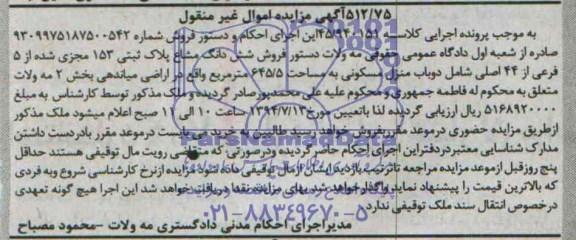 ۵۱۲/۷۵آگهی مزایده اموال غیر منقول
به موجب پرونده اجرایی کلاسه ۴۵/۹۴۰۱۵۱این اجرای احکام و دستور فروش شماره ۹۳۰۹۹۷۵۱۸۷۵۰۰۵۴۲
صادره از شعبه اول دادگاه عمومی حقوقی مه ولات دستور فروش شش دانگ مشاع پلاک ثبتی ۱۵۳ مجزی شده از ۵
فرعی از ۴۴ اصلی شامل دوباب منزل مسکونی به مساحت ۶۴۵/۵ مترمربع واقع در اراضی میاندهی بخش ۲ مه ولات
متعلق به محکوم له فاطمه جمهوری و محکوم علیه علی محمدپور صادر گردیده و ملک مذکور توسط کارشناس به مبلغ
۵۱۶۸۹۲۰۰۰۰ ریال ارزیابی گردیده لذا باتعیین مورخ۱۳۹۴/۷/۱۳ ساعت ۱۰ الی ۱۱ صبح اعلام میشود ملک مذکور
ازطریق مزایده حضوری درموعد مقرربفروش خواهد رسید طالبین به خرید می بایست درموعد مقرر بادردست داشتن
مدارک شناسایی معتبردردفتراین اجرای احکام حاضر گردیده و درصورتی که متقاضی رویت مال توقیفی هستند حداقل
پنج روزقبل ازموعد مزایده مراجعه تاترتیب بازدیدایشان ازمال توقیفی داده شود مزایده ازنرخ کارشناسی شروع وبه فردی
که بالاترین قیمت را پیشنهاد نماید واگذارخواهد شد بهای مزایده نقدا دریافت خواهد شد این اجرا هیچ گونه تعهدی
درخصوص انتقال سند ملک توقیفی ندارد
مدیراجرای احکام مدنی دادگستری مه ولات -محمود مصباح
ParsNamadData
۰۲۱-۸۸۳۴۹۶۷۰-۵